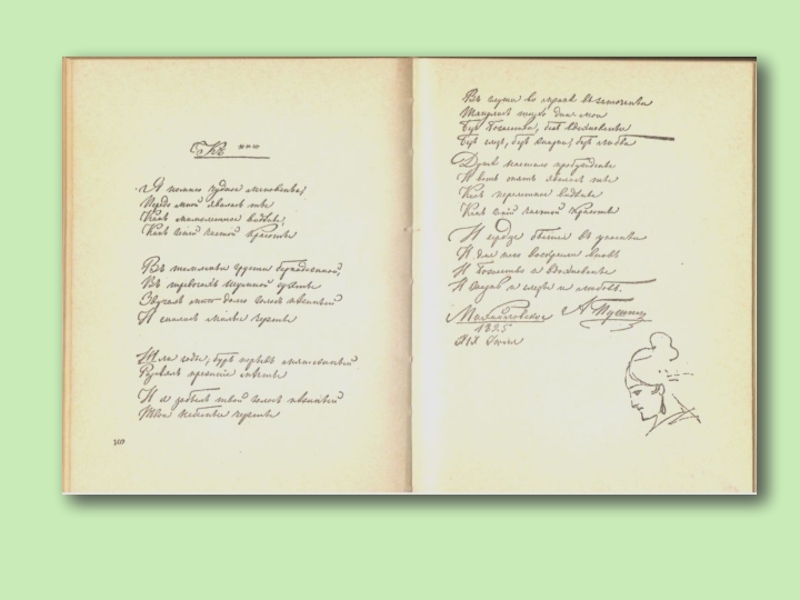 Къ ***
Я помню чудное мгновенье;
Передо мной явилась ты
Какъ мимолетное видѣнье,
Какъ геній чистой красоты
Въ томленьи грусти безнадежной,
Въ тревогахъ шумной суеты
Звучалъ мнѣ долго голосъ нѣжный
И снились милыя черты
Шли годы, бурь порывъ мятежный
Разсѣялъ прежнія мечты
И я забылъ твой голосъ нѣжный
Твои небесныя черты
Въ глуши во мракѣ заточенья
Тянулись тихо дни мои
Безъ божества, безъ вдохновенья
Безъ слезъ, безъ жизни, безъ любви
Душѣ настало пробужденье
И вотъ опять явилась ты
Какъ мимолетное видѣнье
Какъ геній чистой красоты
И сердце бьется въ упоеньи
И для него воскресли вновь
И божество и вдохновенье
И жизнь и слезы и любовь.
Михайловское А Пушкинъ
1825